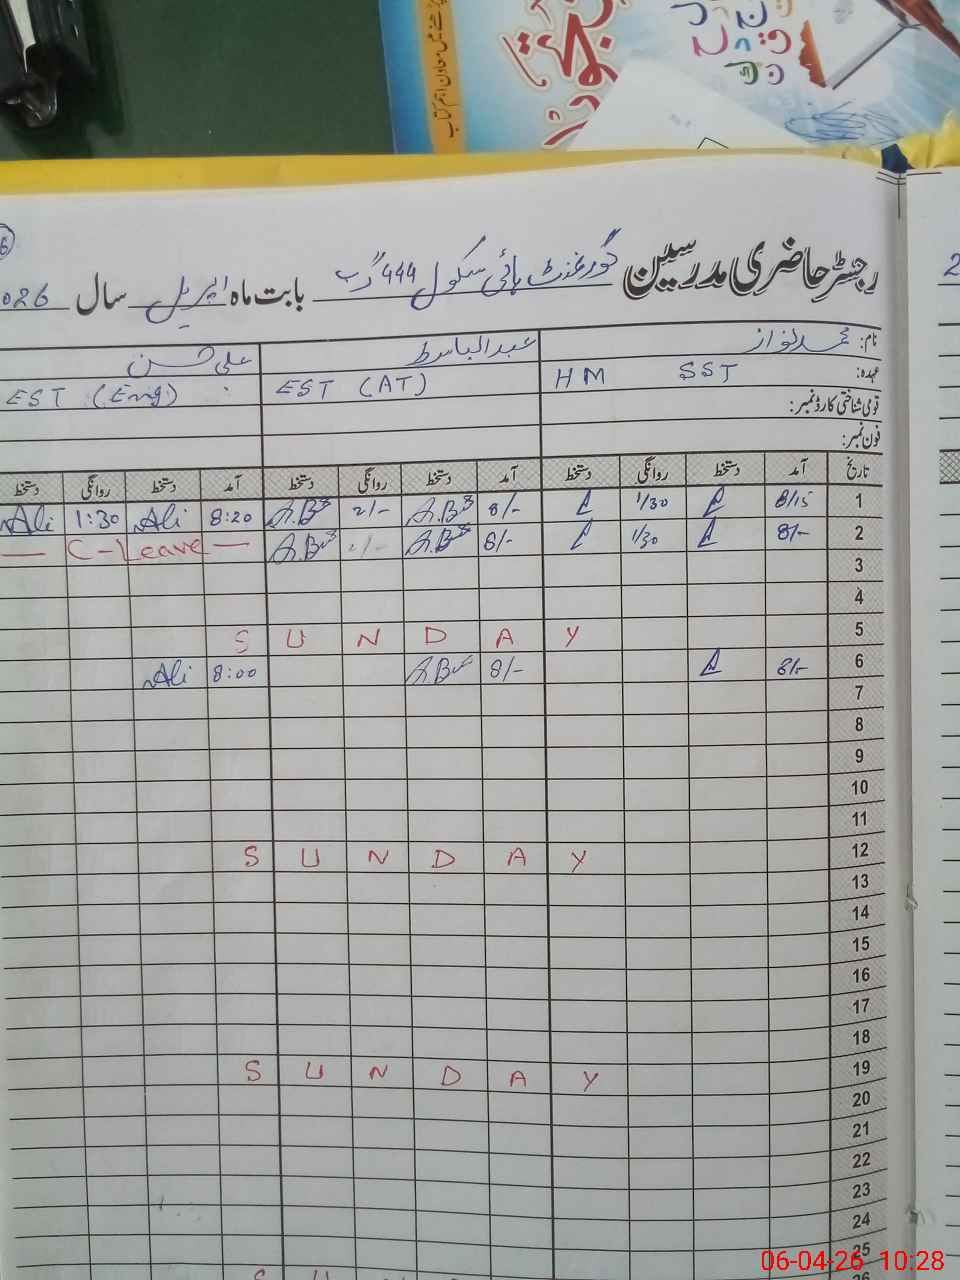 میں معاون اہم کتاب
رجسٹر حاضری مدرسین گورنمنٹ ہائی سکول 444 گ ب بابت ماہ اپریل سال 2026
نام: محمد نواز عبدالباسط علی حسن
عہدہ: HM SST EST (AT) EST (Eng)
قومی شناختی کارڈ نمبر:
فون نمبر:
تاریخ آمد دستخط روانگی دستخط آمد دستخط روانگی دستخط آمد دستخط روانگی دستخط
1 8/15 1/30 8/- A.B 2/- A.B 8:20 Ali 1:30 Ali
2 8/- 1/30 8/- A.B A.B — C-Leave —
3
4
5 SUNDAY
6 8/- 8/- A.B 8:00 Ali
7
8
9
10
11
12 SUNDAY
13
14
15
16
17
18
19 SUNDAY
20
21
22
23
24
25
26 S U N
06-04-26 10:28